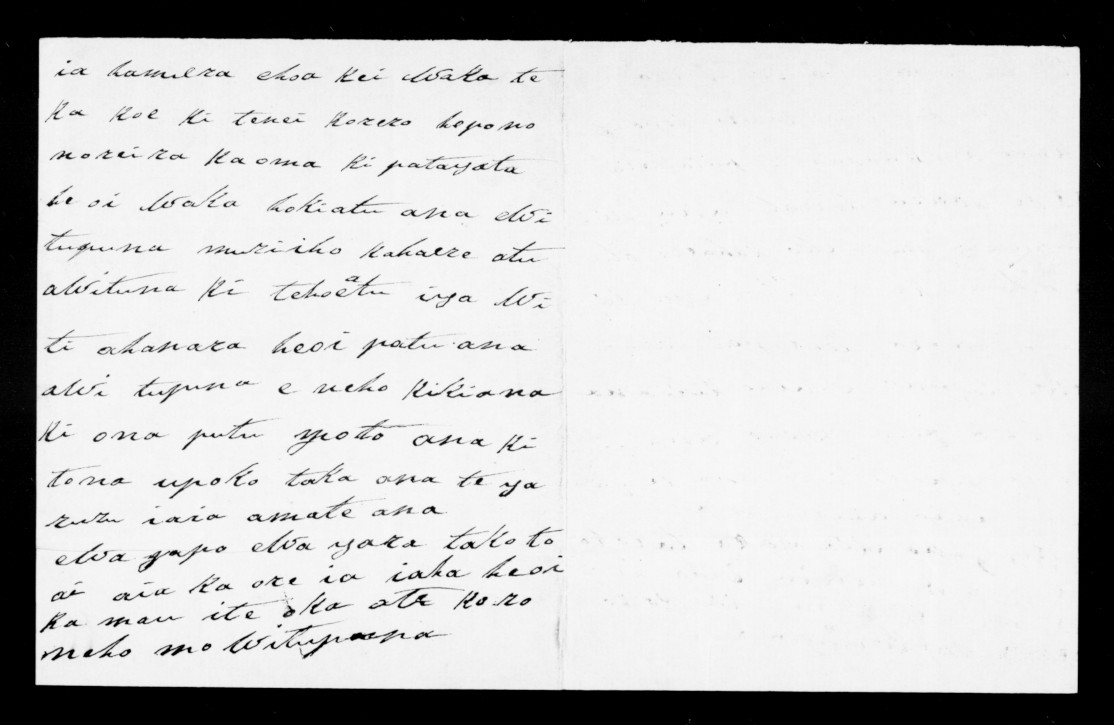 ia hamuera ehoa kei Waka te
ka koe ki tenei korero hepono
noreira kaoma ki patayata
heoi Waka hokiatu ana Wi
tupuna muriiho kahaere atu
aWituna ki tehoatu iya Wi
ti ahanara heoi patu ana
aWi tupuna e neho kikiana
ki ona putu yoto ana ki
tona upoko taka ana te ya
ruru iaia amate ana
eWa yapo eWa yara takoto
ai aia ka ore ia iaha heoi
ka mau ite oka ate koro
neho mo Witupuna